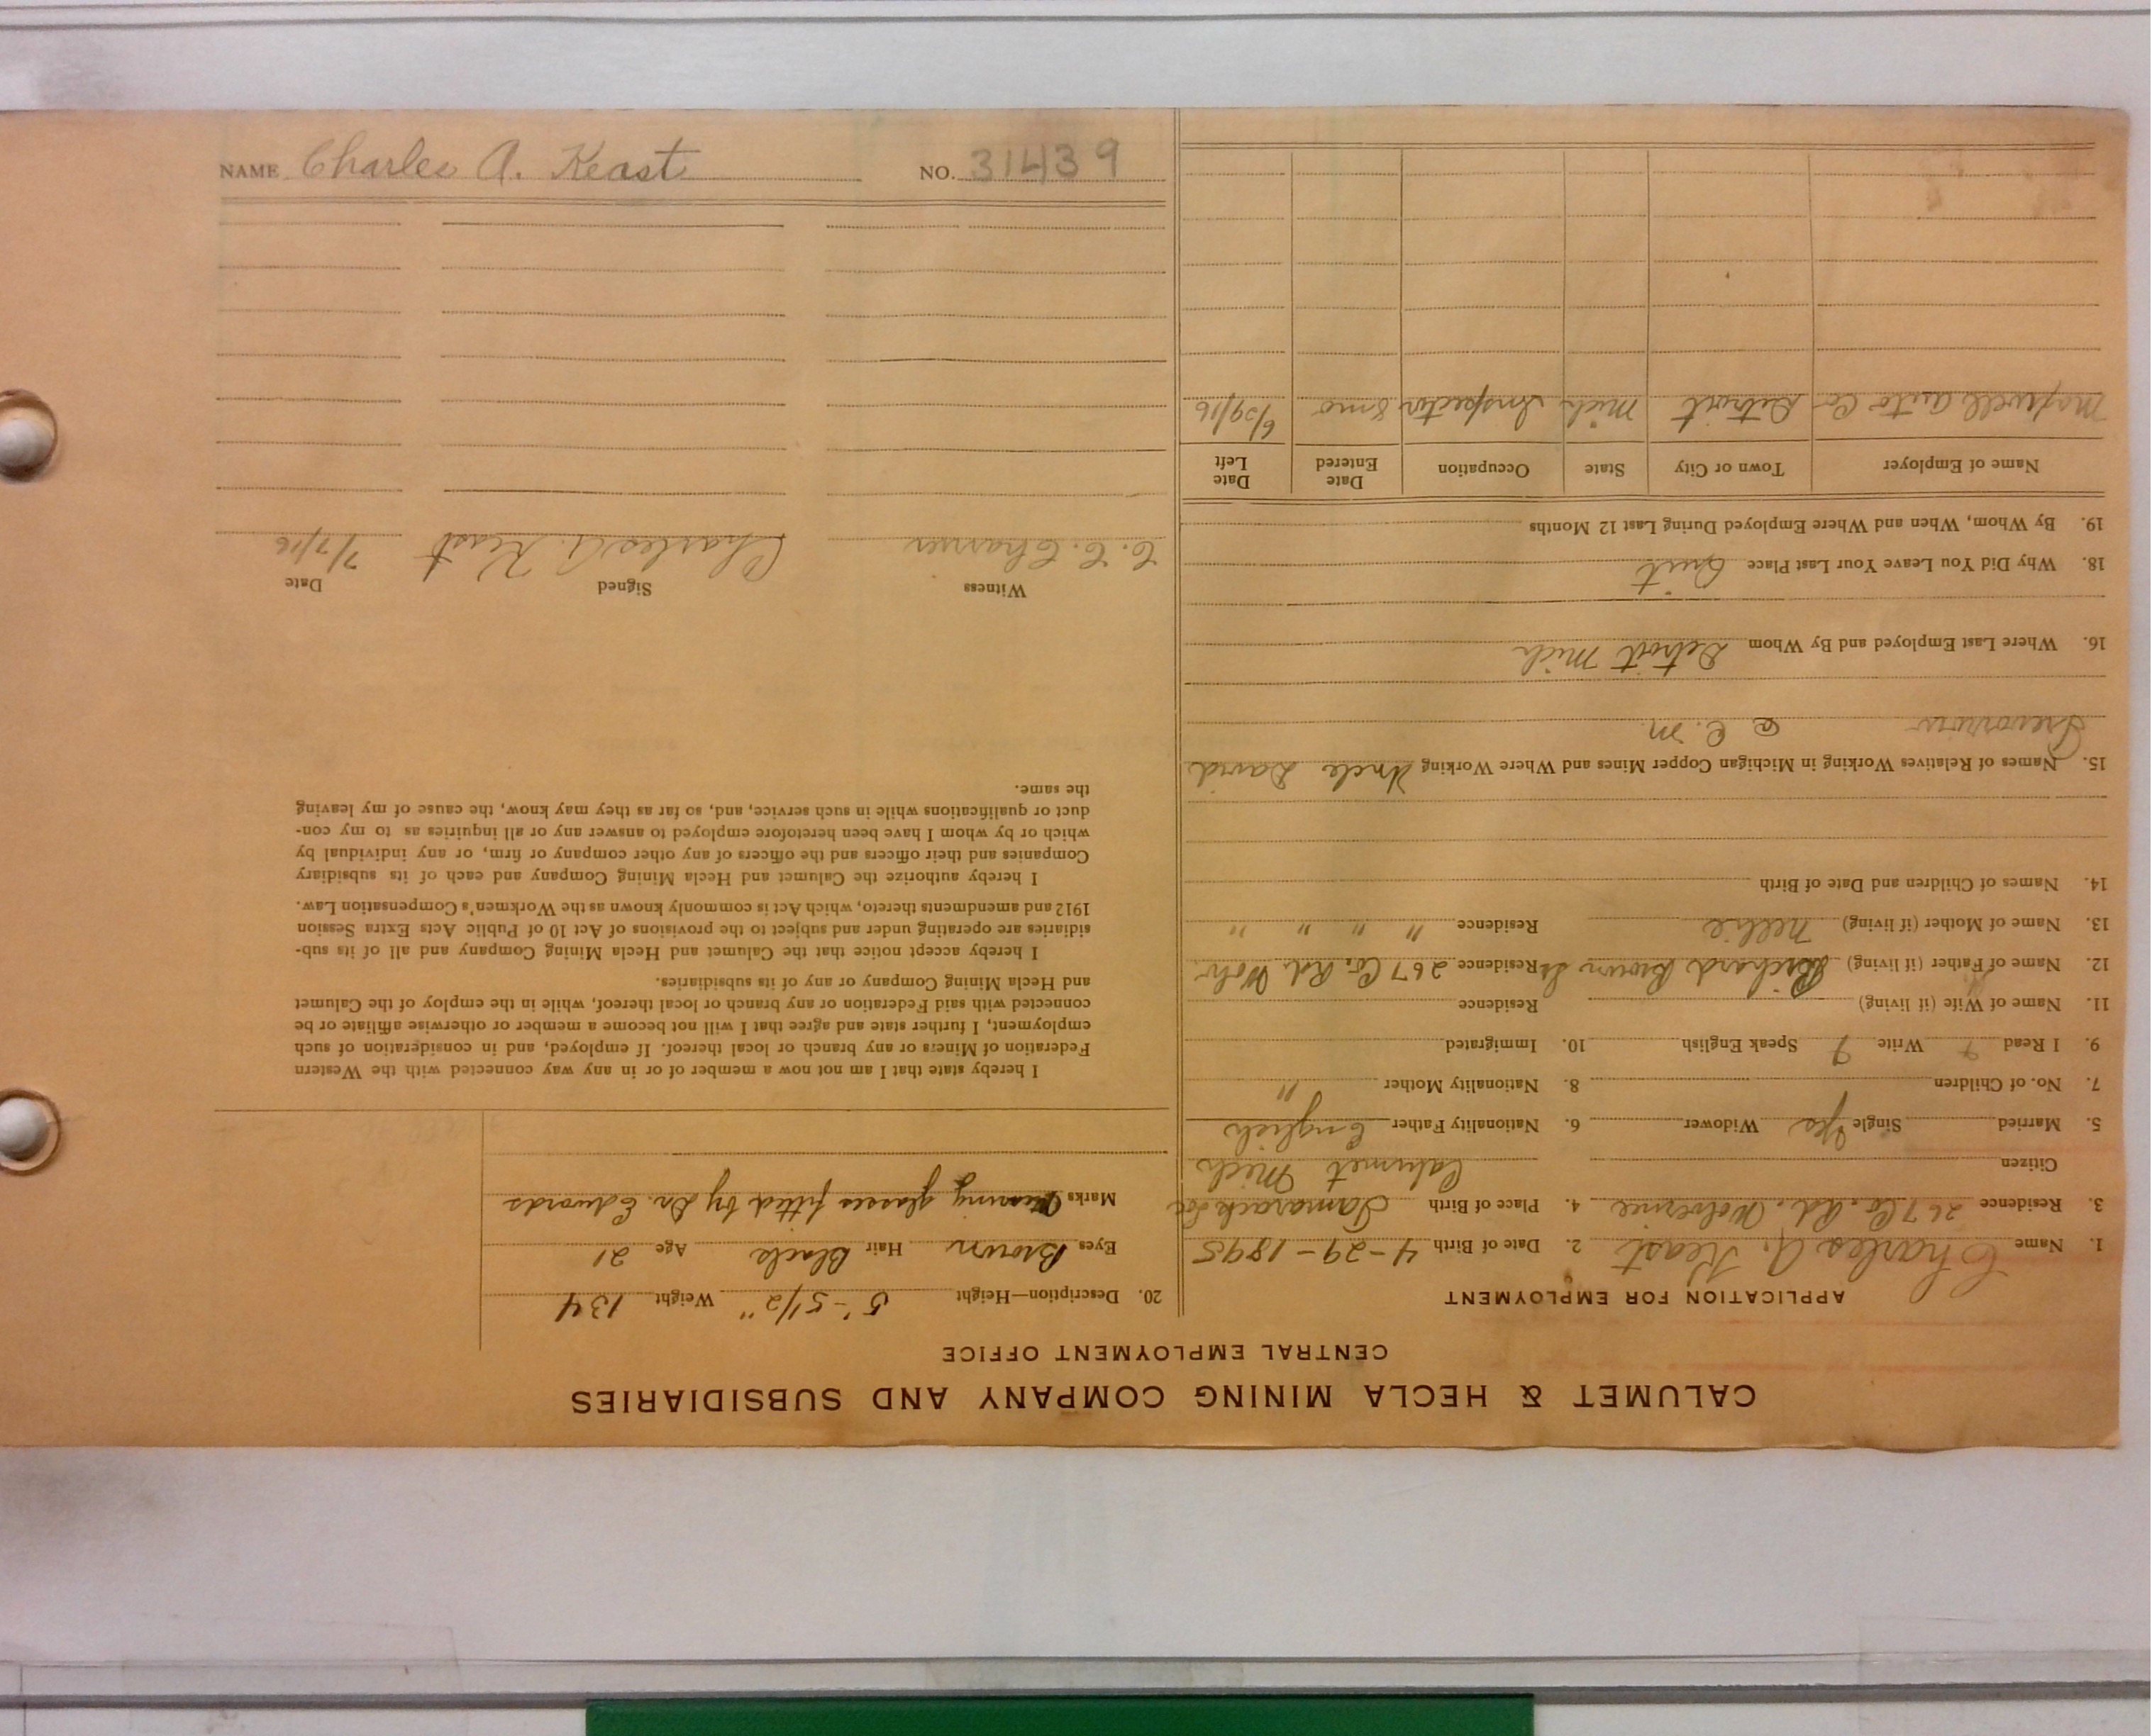 CALUMET & HECLA MINING COMPANY AND SUBSIDIARIES
CENTRAL EMPLOYMENT OFFICE
APPLICATION FOR EMPLOYMENT
1. Name Charles A. Keast 2. Date of Birth 4-29-1895
3. Residence 267 Co. Rd. Wolverine 4. Place of Birth Tamarack Loc
Citizen Calumet Mich
5. Married Single Yes Widower 6. Nationality Father English
7. No. of Children 8. Nationality Mother "
9. I Read Write Speak English 10. Immigrated
11. Name of Wife (if living) Residence
12. Name of Father (if living) Richard Brown Residence 267 Co. Rd. Wolv
13. Name of Mother (if living) Nellie Residence " " " "
14. Names of Children and Date of Birth
15. Names of Relatives Working in Michigan Copper Mines and Where Working Uncle David
C. M
16. Where Last Employed and By Whom Detroit Mich
18. Why Did You Leave Your Last Place Quit
19. By Whom, When and Where Employed During Last 12 Months
Name of Employer Town or City State Occupation Date Entered Date Left
Maxwell Auto Co Detroit Mich Inspector 8 mo 6/29/16
20. Description—Height 5'-5 1/2" Weight 134
Eyes Brown Hair Black Age 21
Marks glasses fitted by Dr. Edwards
I hereby state that I am not now a member of or in any way connected with the Western
Federation of Miners or any branch or local thereof. If employed, and in consideration of such
employment, I further state and agree that I will not become a member or otherwise affiliate or be
connected with said Federation or any branch or local thereof, while in the employ of the Calumet
and Hecla Mining Company or any of its subsidiaries.
I hereby accept notice that the Calumet and Hecla Mining Company and all of its sub-
sidiaries are operating under and subject to the provisions of Act 10 of Public Acts Extra Session
1912 and amendments thereto, which Act is commonly known as the Workmen's Compensation Law.
I hereby authorize the Calumet and Hecla Mining Company and each of its subsidiary
Companies and their officers and the officers of any other company or firm, or any individual by
which or by whom I have been heretofore employed to answer any or all inquiries as to my con-
duct or qualifications while in such service, and, so far as they may know, the cause of my leaving
the same.
Witness Signed Date
Charles A. Keast 7/7/16
NAME Charles A. Keast NO. 31439